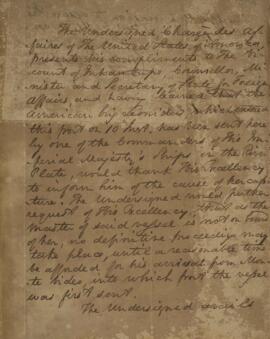 The Undersigned Chargé des Af-
faires of The United States of America,
presents his compliments to The Vis-
count of Inhambupe, Councillor, Mi-
nister and Secretary of State for Foreign
Affairs, and having learned that the
American brig Leonidas, which entered
this port on 10 Inst. has been sent here
by one of the Commanders of His Im-
perial Majesty's Ships in the River
Plate, would thank His Excellency
to inform him of the cause of her cap-
ture. The Undersigned would further
request of His Excellency, that as the
master of said vessel is not on board
of her, no definitive proceeding may
take place, until a reasonable time
be afforded for his arrival from Mon-
te Video, into which port the vessel
was first sent.
The Undersigned avails